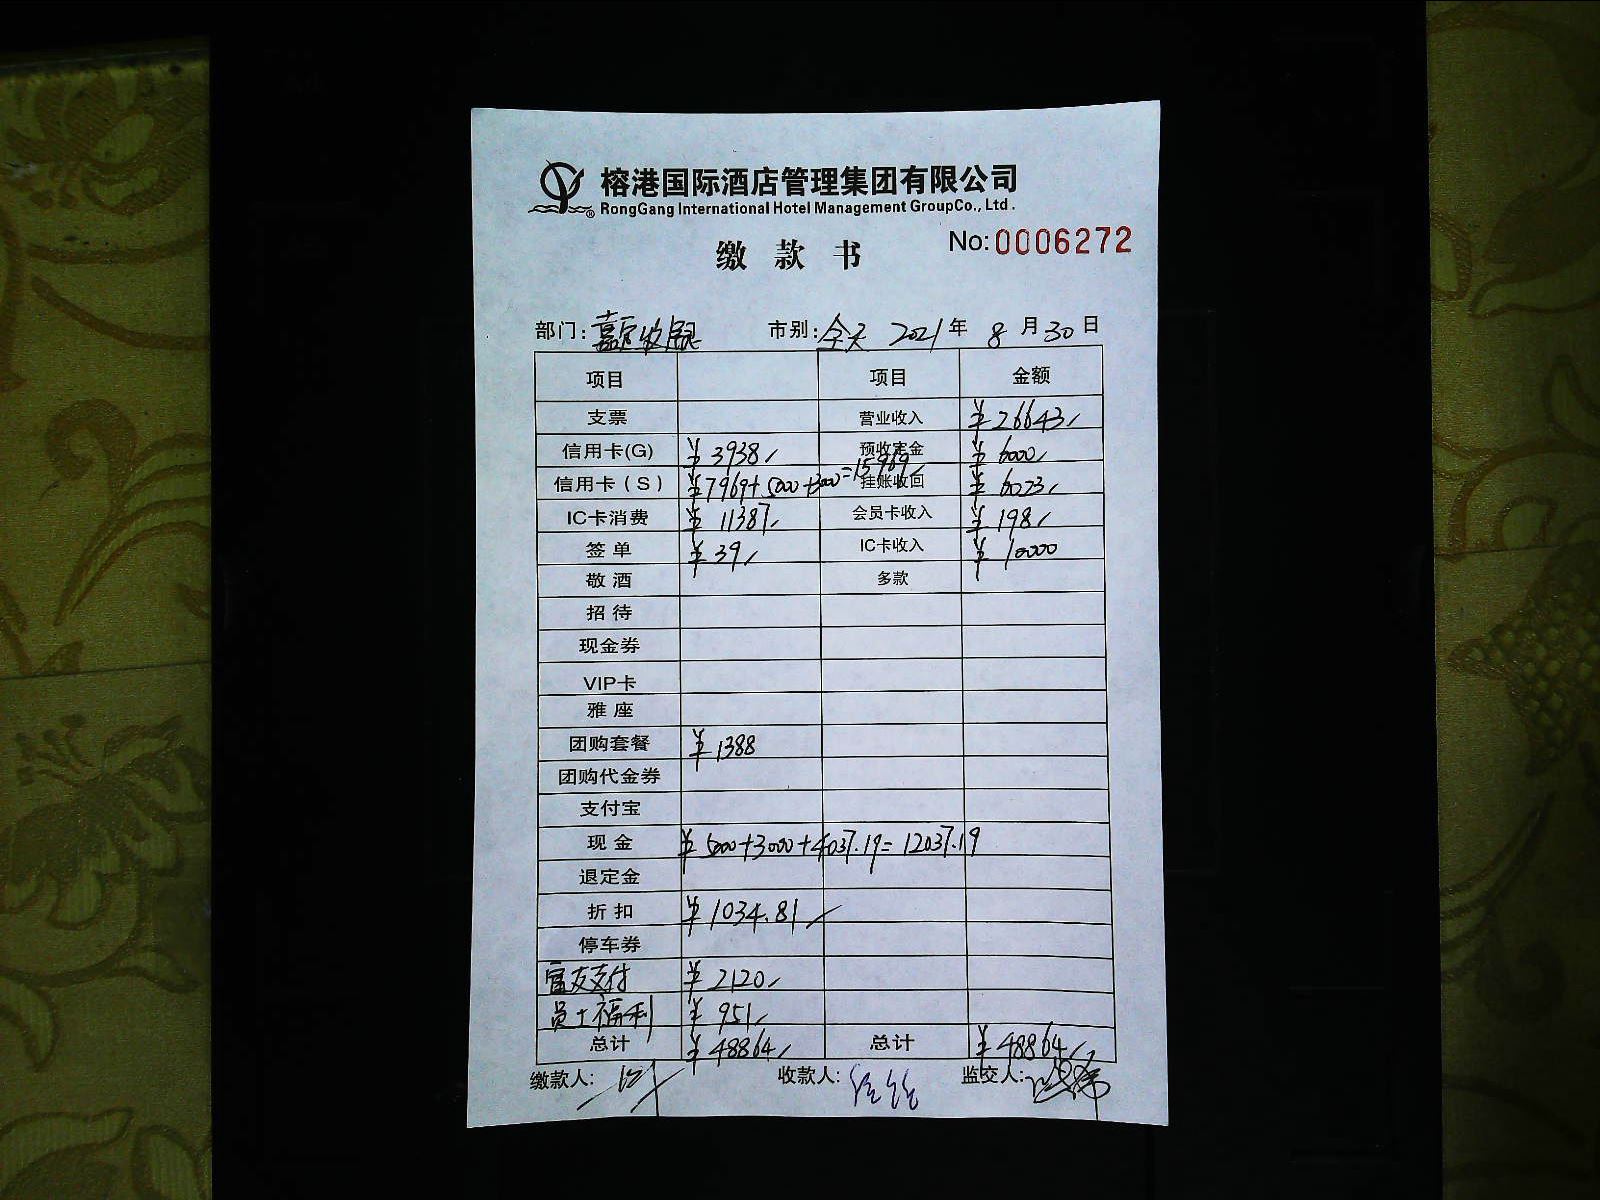 榕港国际酒店管理集团有限公司
® RongGang International Hotel Management GroupCo., Ltd.
缴 款 书 No:0006272
部门: 嘉宾收银 市别: 全天 2021 年 8 月 30 日
项目 项目 金额
支票 营业收入 ¥26643/
信用卡(G) ¥3938/ 预收定金 ¥6000/
信用卡(S) ¥7969+5000+3000=15969/ 挂账收回 ¥6023/
IC卡消费 ¥11387/ 会员卡收入 ¥198/
签 单 ¥39/ IC卡收入 ¥10000
敬 酒 多款
招 待
现金券
VIP卡
雅 座
团购套餐 ¥1388
团购代金券
支付宝
现 金 ¥5000+3000+4037.19=12037.19
退定金
折 扣 ¥1034.81/
停车券
富友支付 ¥2120/
员工福利 ¥951/
总计 ¥48864/ 总计 ¥48864/
缴款人: 收款人: 监交人: